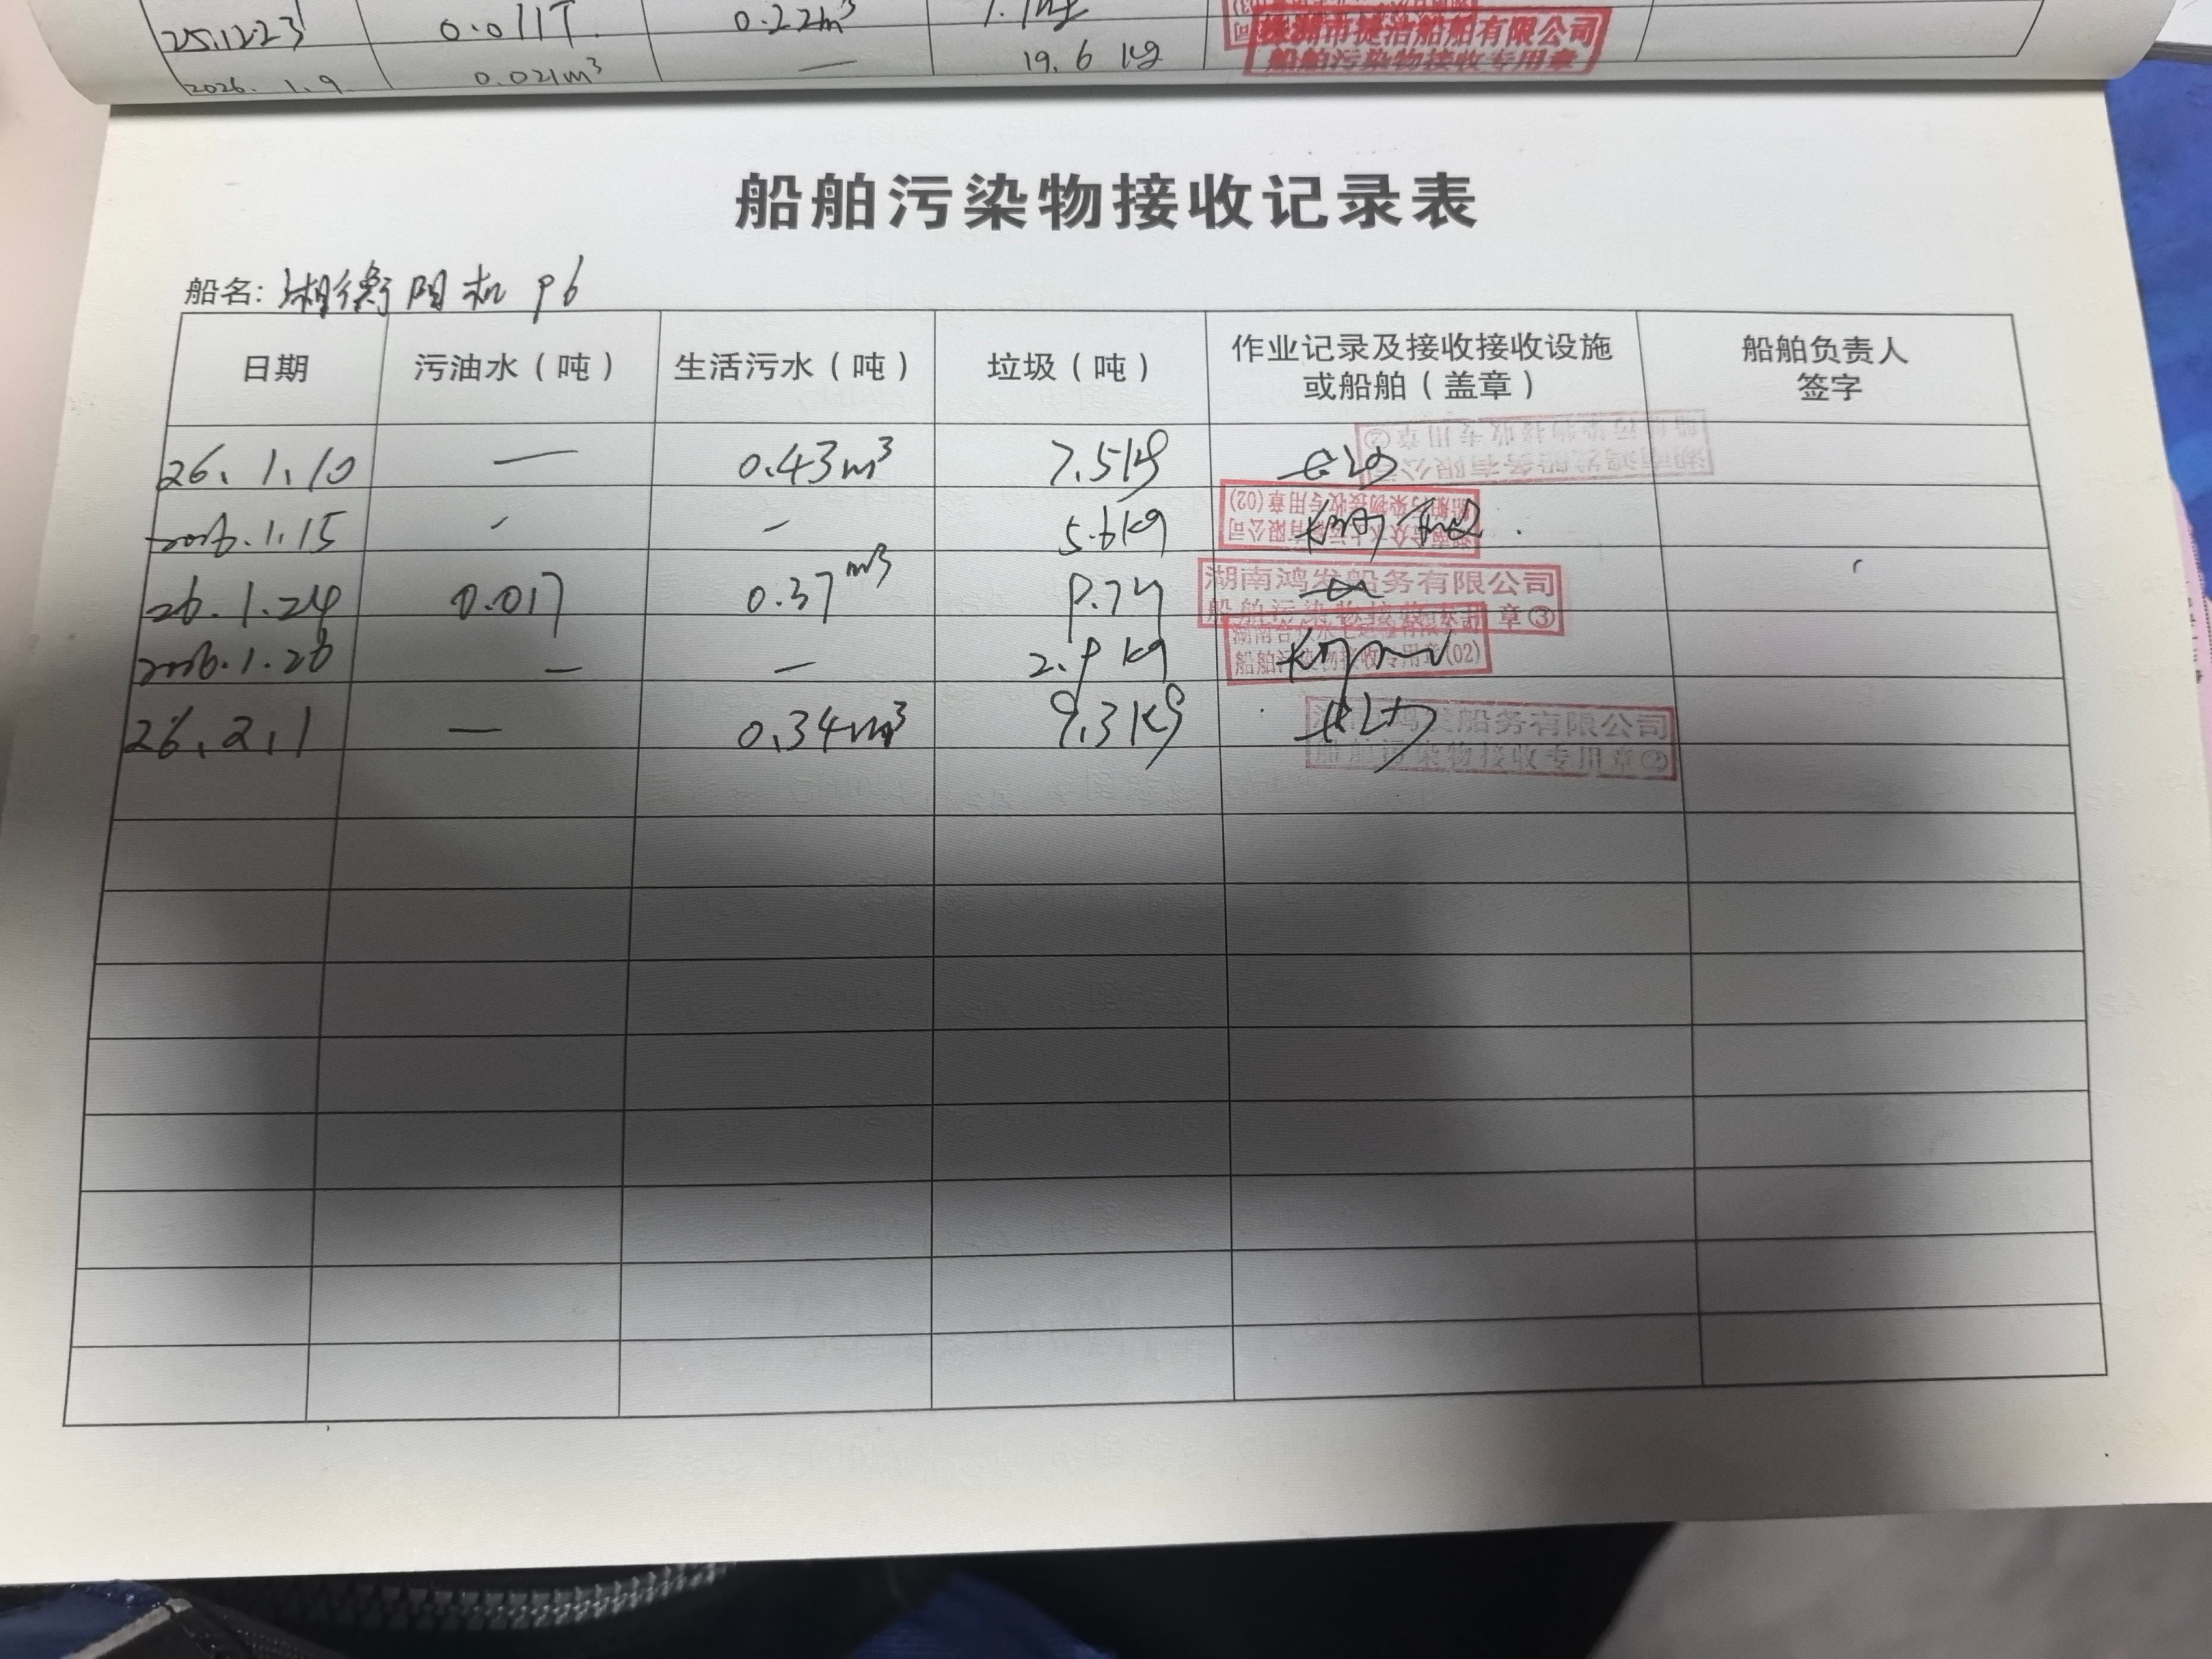 25.12.23 0.011T 0.22m³
株洲市捷洁船舶有限公司
船舶污染物接收专用章
2026.1.9 0.021m³ — 19.6 kg
船舶污染物接收记录表
船名: 湘衡阳机 96
日期 污油水（吨） 生活污水（吨） 垃圾（吨） 作业记录及接收接收设施或船舶（盖章） 船舶负责人签字
26.1.10 — 0.43m³ 7.5kg
湖南鸿发船务有限公司
船舶污染物接收专用章②
2026.1.15 - - 5.6kg
船舶污染物接收专用章(02)
26.1.24 0.017 0.37m³
湖南鸿发船务有限公司
船舶污染物接收专用章③
2026.1.28 — — 2.9kg
船舶污染物接收专用章(02)
26.2.1 — 0.34m³ 9.3kg
湖南鸿发船务有限公司
船舶污染物接收专用章②